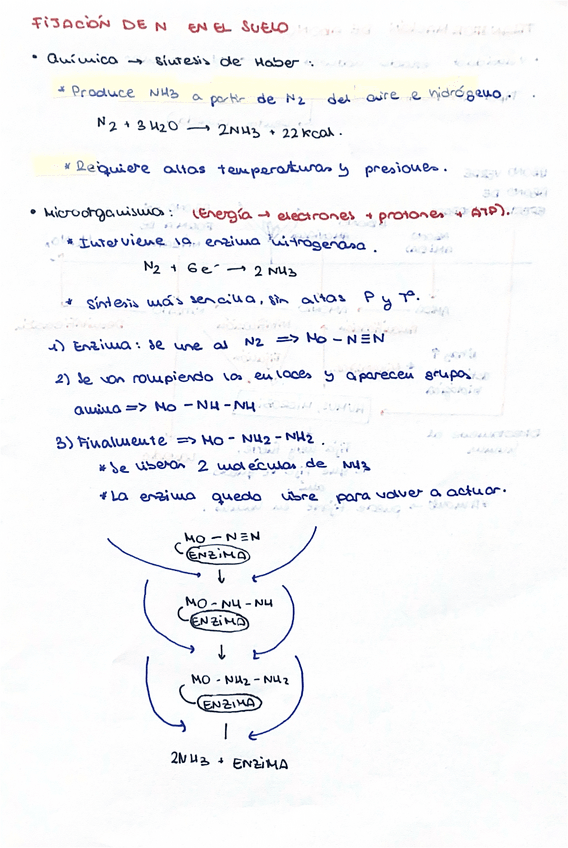 FIJACIÓN DE N EN EL SUELO
• Química → síntesis de Haber:
* Produce NH3 a partir de N2 del aire e hidrógeno.
N2 + 3H2O → 2NH3 + 22 kcal.
* Requiere altas temperaturas y presiones.
• Microorganismo: (Energía → electrones + protones + ATP).
* Interviene la enzima nitrogenasa.
N2 + 6e⁻ → 2NH3
* Síntesis más sencilla, sin altas P y Tª.
1) Enzima: se une al N2 => Mo - N≡N
2) Se van rompiendo los enlaces y aparecen grupos
amina => Mo - NH - NH
3) Finalmente => Mo - NH2 - NH2.
* Se liberan 2 moléculas de NH3
* La enzima queda libre para volver a actuar.
MO - N≡N
ENZIMA
↓
MO - NH - NH
ENZIMA
↓
MO - NH2 - NH2
ENZIMA
2NH3 + ENZIMA